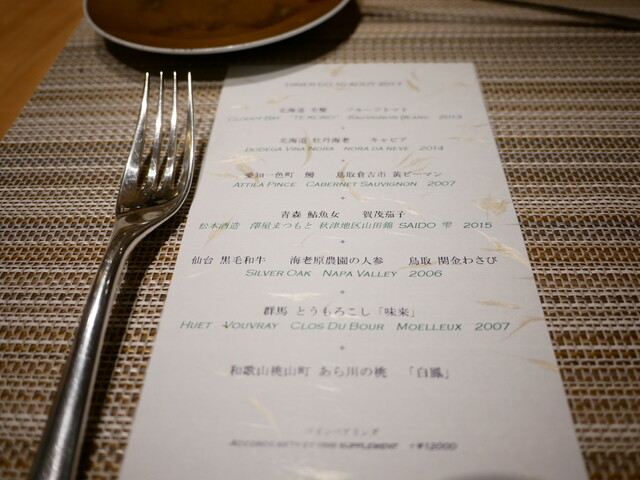 DINER DU 05 AOUT 2017
北海道 毛蟹 フルーツトマト
CLOUDY BAY "TE KOKO" SAUVIGNON BLANC 2013
北海道 牡丹海老 キャビア
BODEGA VIÑA NORA NORA DA NEVE 2014
愛知一色町 鰻 鳥取倉吉市 黄ピーマン
ATTILA PINCE CABERNET SAUVIGNON 2007
青森 鮎魚女 賀茂茄子
松本酒造 澤屋まつもと 秋津地区山田錦 SAIDO 雫 2015
仙台 黒毛和牛 海老原農園の人参 鳥取 関金わさび
SILVER OAK NAPA VALLEY 2006
群馬 とうもろこし「味来」
HUET VOUVRAY CLOS DU BOUR MOELLEUX 2007
和歌山桃山町 あら川の桃 「白鳳」
ワインペアリング
ACCORDS METS ET VINS SUPPLEMENT +¥12000